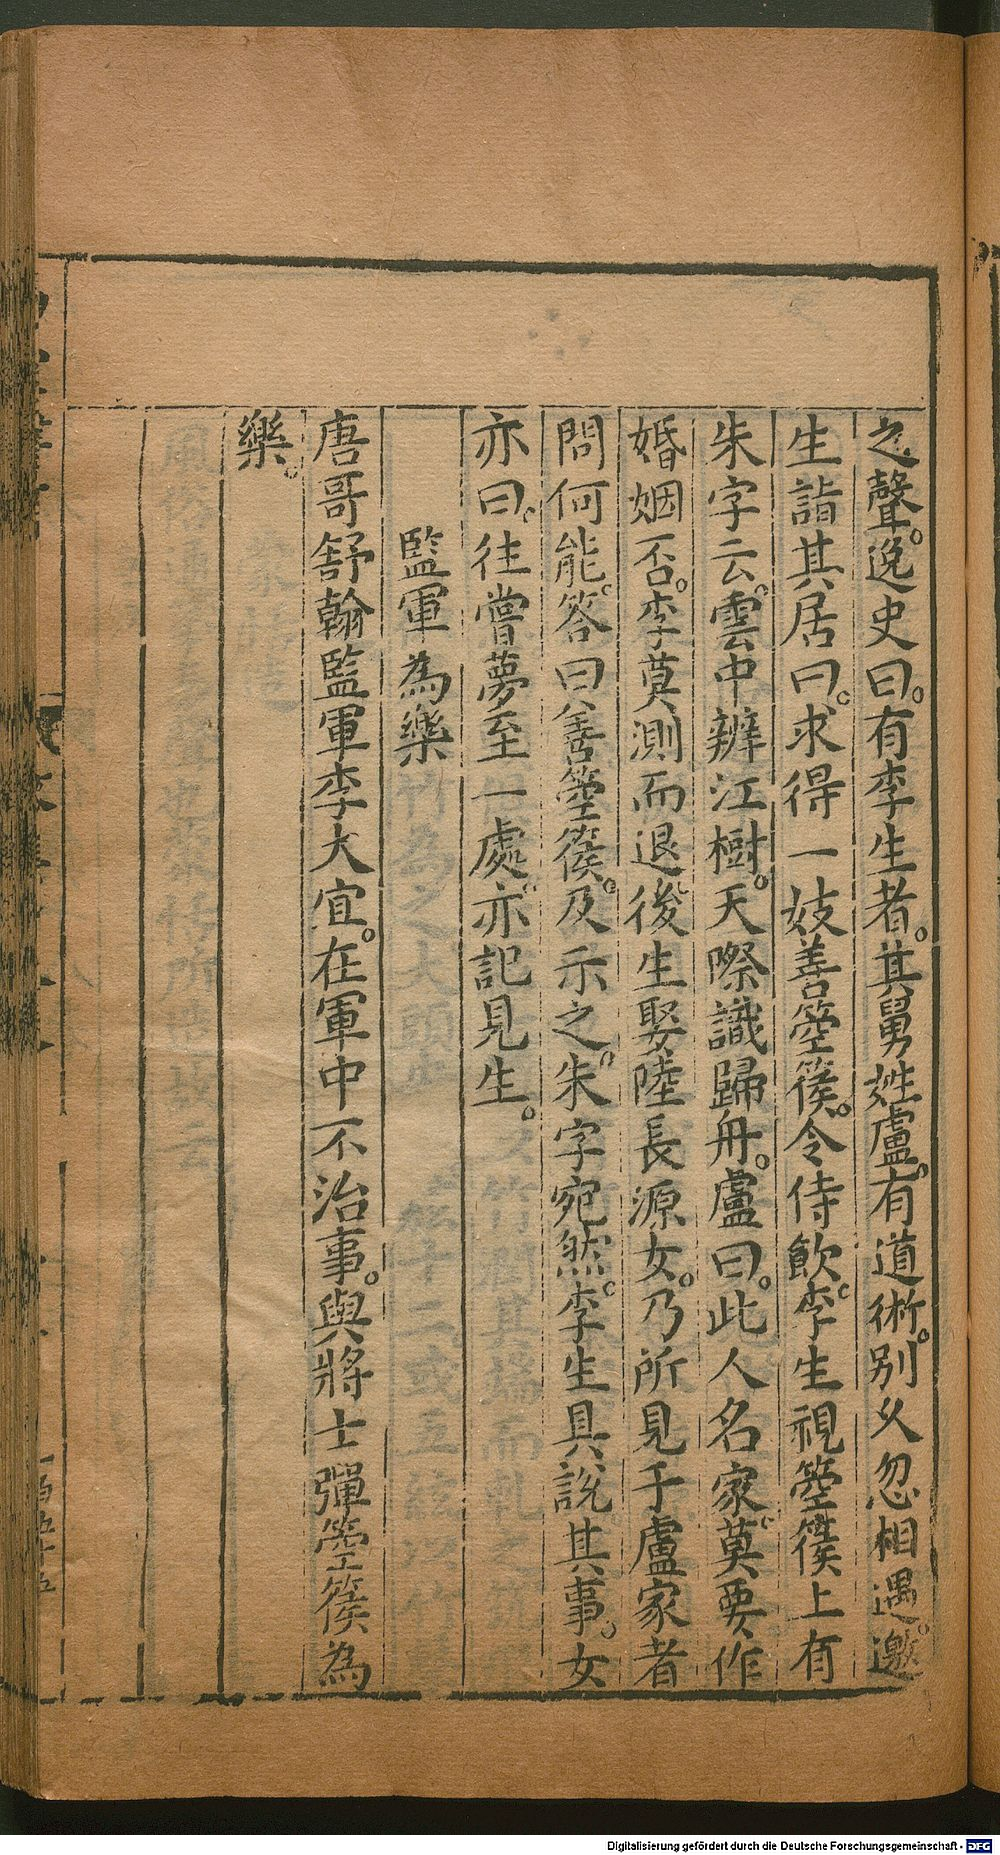 之聲。逸史曰。有李生者。其舅姓盧。有道術。別久忽相遇。邀
生詣其居曰。求得一妓善箜篌。令侍飲。李生視箜篌上有
朱字云。雲中辨江樹。天際識歸舟。盧曰。此人名家。莫要作
婚姻否。李莫測而退。後生娶陸長源女。乃所見于盧家者
問何能。答曰善箜篌。及示之。朱字宛然。李生具說其事。女
亦曰。往嘗夢至一處。亦記見生。
監軍為樂
唐哥舒翰監軍李大宜。在軍中不治事。與將士彈箜篌為
樂。
Digitalisierung gefördert durch die Deutsche Forschungsgemeinschaft - DFG